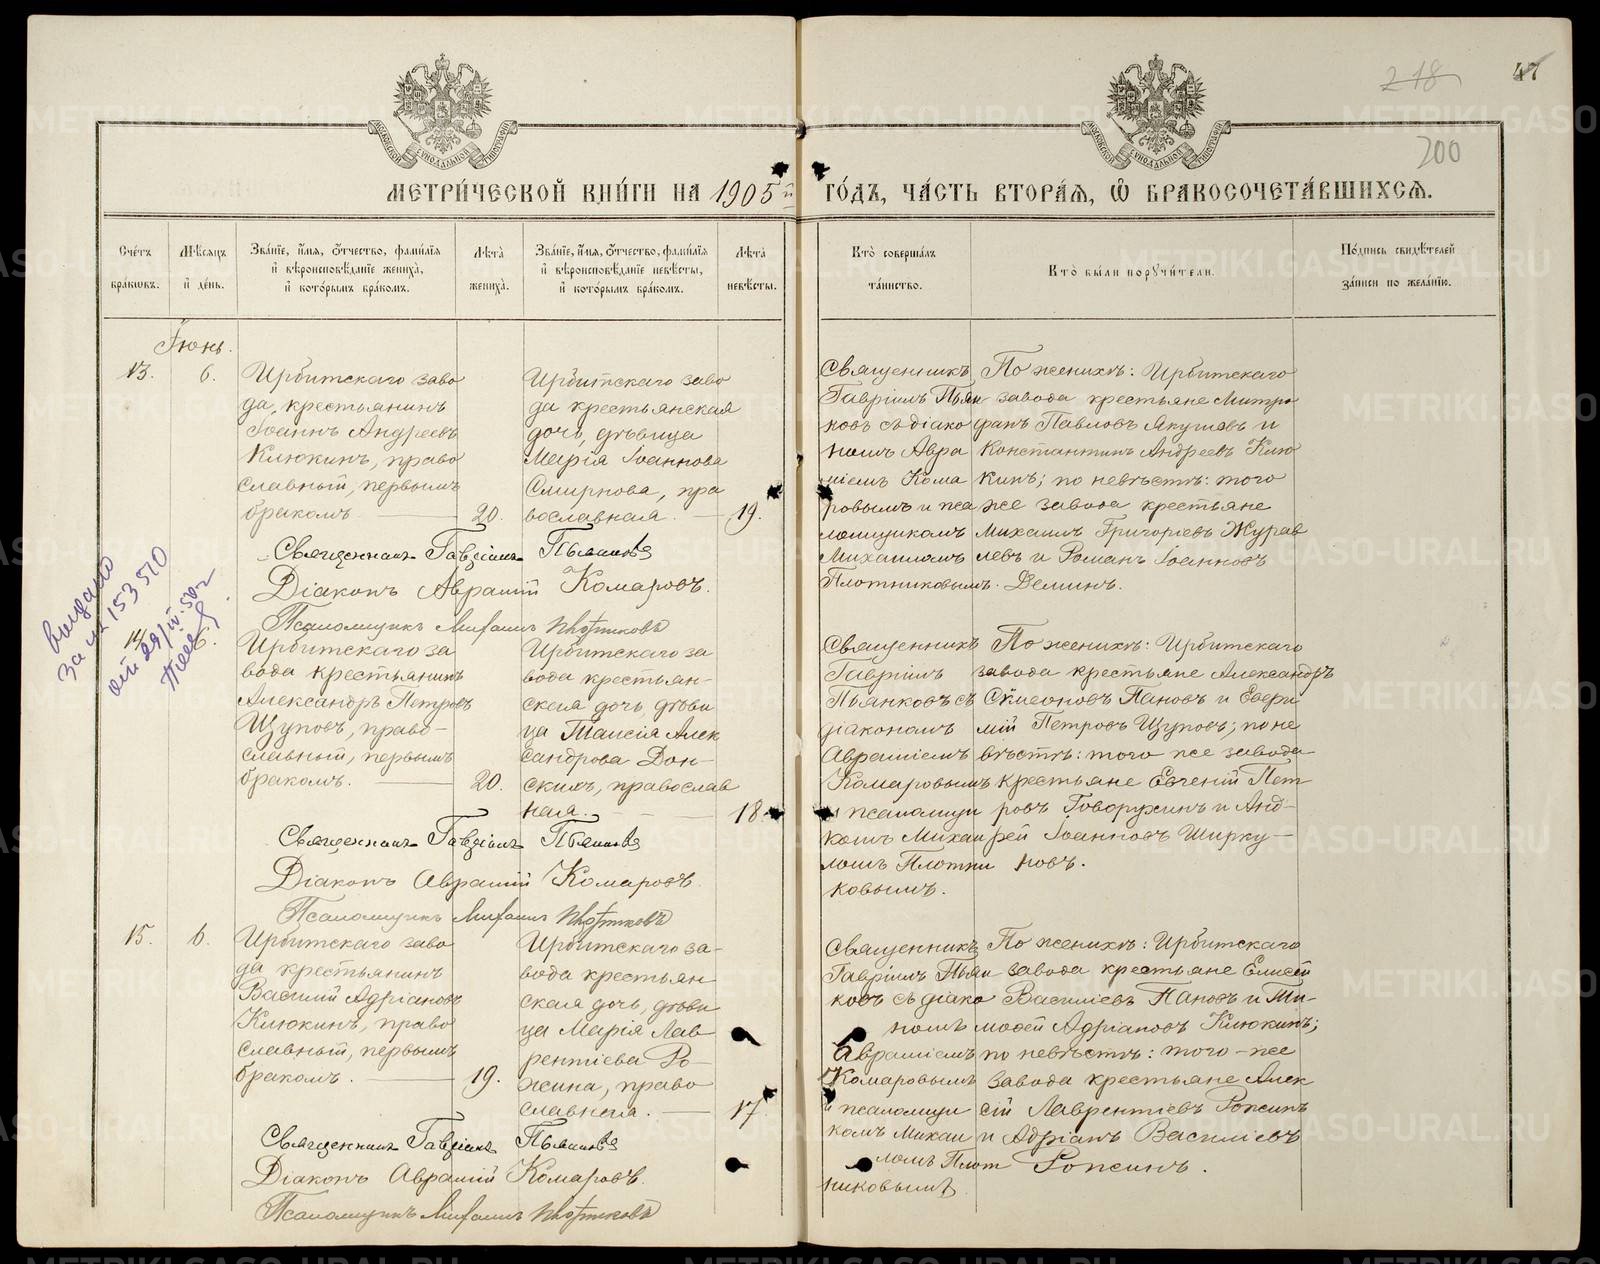 218
47
200
МЕТРИ́ЧЕСКОЙ КНИ́ГИ НА 1905й ГО́ДЪ, ЧА́СТЬ ВТОРА́Я, Ѿ БРАКОСОЧЕТА́ВШИХСЯ.
Сче́тъ бра́ковъ.
Мѣ́сяцъ и де́нь.
Зва́нїе, и́мя, о́тчество, фами́лїя и вѣроисповѣ́данїе жениха̀, и кото́рымъ бра́комъ.
Лѣта̀ жениха̀.
Зва́нїе, и́мя, о́тчество, фами́лїя и вѣроисповѣ́данїе невѣ́сты, и кото́рымъ бра́комъ.
Лѣта̀ невѣ́сты.
Кто̀ соверша́лъ та́инство.
Кто̀ бы́ли поручи́тели.
По́дпись свидѣ́телей за́писи по жела́нїю.
Іюнь.
13.
6.
Ирбитскаго заво
да, крестьянинъ
Іоаннъ Андреевъ
Клюкинъ, право
славный, первымъ
бракомъ
20.
Ирбитскаго заво
да крестьянская
дочь, дѣвица
Марія Іоаннова
Смирнова, пра
вославная.
19.
Священникъ
Гавріилъ Пьян
ковъ съ діако
номъ Авра
міемъ Кома
ровымъ и пса
ломщикомъ
Михаиломъ
Плотниковымъ.
По женихѣ: Ирбитскаго
завода крестьяне Митро
фанъ Павловъ Якушевъ и
Константинъ Андреевъ Клю
кинъ; по невѣстѣ: того
же завода крестьяне
Михаилъ Григорьевъ Журав
левъ и Романъ Іоанновъ
Деминъ.
Священникъ Гавріилъ Пьянковъ
Діаконъ Аврамій Комаровъ.
Псаломщикъ Михаилъ Плотниковъ
выдано
за № 153510
от 29/IV-50г
14.
6.
Ирбитскаго за
вода крестьянинъ
Александръ Петровъ
Щуповъ, право-
славный, первымъ
бракомъ.
20.
Ирбитскаго за
вода крестьян-
ская дочь, дѣви
ца Таисія Алек
сандрова Дон-
скихъ, православ
ная.
18
Священникъ
Гавріилъ
Пьянковъ съ
діакономъ
Авраміемъ
Комаровымъ
и псаломщи
комъ Михаи
ломъ Плотни
ковымъ.
По женихѣ: Ирбитскаго
завода крестьяне Александръ
Симеоновъ Пановъ и Евфи
мій Петровъ Щуповъ; по не
вѣстѣ: того же завода
крестьяне Евгеній Пет
ровъ Говорухинъ и Анд-
рей Іоанновъ Ширку-
новъ.
Священникъ Гавріилъ Пьянковъ
Діаконъ Аврамій Комаровъ.
Псаломщикъ Михаилъ Плотниковъ
15.
6.
Ирбитскаго заво
да крестьянинъ
Василій Адріановъ
Клюкинъ, право
славный, первымъ
бракомъ.
19.
Ирбитскаго за-
вода крестьян
ская дочь, дѣви
ца Марія Лав
рентіева Ро-
жина, право
славная.
17
Священникъ
Гавріилъ Пьян
ковъ съ діако
номъ
Авраміемъ
Комаровымъ
и псаломщи
комъ Михаи
ломъ Плот
никовымъ.
По женихѣ: Ирбитскаго
завода крестьяне Елисей
Василіевъ Пановъ и Ти-
мофей Адріановъ Клюкинъ;
по невѣстѣ: того-же
завода крестьяне Алек
сій Лаврентіевъ Рожинъ
и Адріанъ Василіевъ
Рожинъ.
Священникъ Гавріилъ Пьянковъ
Діаконъ Аврамій Комаровъ.
Псаломщикъ Михаилъ Плотниковъ
METRIKI.GASO-URAL.RU